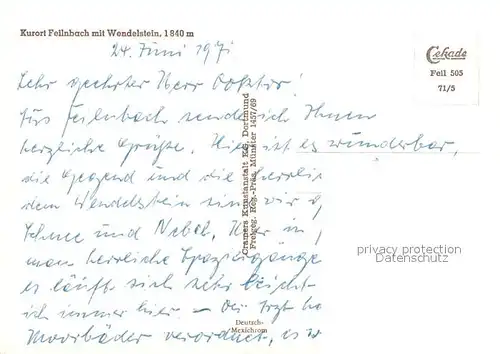 Kurort Feilnbach mit Wendelstein, 1840 m
Cekade
Feil 505
71/5
24. Juni 1971
Sehr geehrter Herr Doktor!
Aus Feilnbach sende ich Ihnen
herzliche Grüße. Hier ist es wunderbar,
die Gegend und die herrli
dem Wendelstein sind wir
Schnee und Nebel. Hier in
man herrliche Spaziergänge
es läuft sich sehr leicht -
ich immer hier - Der Arzt ha
Moorbäder verordnet, es w
Cramers Kunstanstalt KG, Dortmund
Freigeg. Reg.-Präs. Münster 1457/69
Deutsch-
Mexichrom
privacy protection
Datenschutz